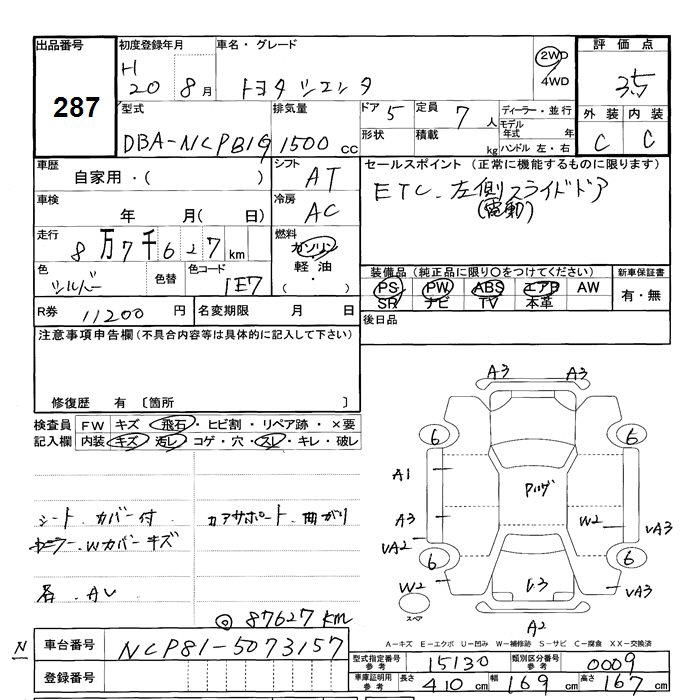 出品番号 初度登録年月 車名・グレード 評価点
287
H 20 8月 トヨタ シエンタ 2WD 4WD 3.5
型式 排気量 ドア 5 定員 7人 ディーラー・並行 外装 内装
DBA-NCP81G 1500cc 形状 積載 kg モデル年式 年 ハンドル 左・右 C C
車歴 シフト セールスポイント (正常に機能するものに限ります)
自家用・( ) AT ETC. 左側スライドドア
車検 冷房 (電動)
年 月( 日) AC
走行 燃料
8万7千627km ガソリン
色 色替 色コード 軽油 装備品 (純正品に限り〇をつけてください) 新車保証書
シルバー 1E7 (・) PS PW ABS エアB AW 有・無
SR ナビ TV 本革
R券 11200円 名変期限 月 日 後日品
注意事項申告欄(不具合内容等は具体的に記入して下さい)
修復歴 有 〔箇所 〕
検査員 FW キズ・飛石・ヒビ割・リペア跡・×要
記入欄 内装 キズ・汚レ・コゲ・穴・スレ・キレ・破レ
A3 A3
6 6
A1
シート.カバー付 コアサポート.曲がり A3 W2 VA3
Wカバーキズ VA2
6 6
各.AU W2 VA3
スペア
◎87627km A2
A-キズ E-エクボ U-凹み W-補修跡 S-サビ C-腐食 XX-交換済
N 車台番号 NCP81-5073157 型式指定番号 参考 15130 類別区分番号 参考 0009
登録番号 車庫証明用 参考 長さ 410cm 幅 169cm 高さ 167cm